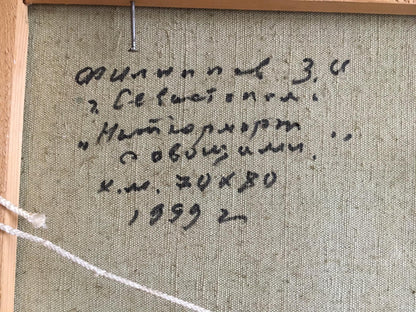 Филиппов З.И
г. Севастополь.
„Натюрморт
с овощами."
х.м. 70х80
1999 г